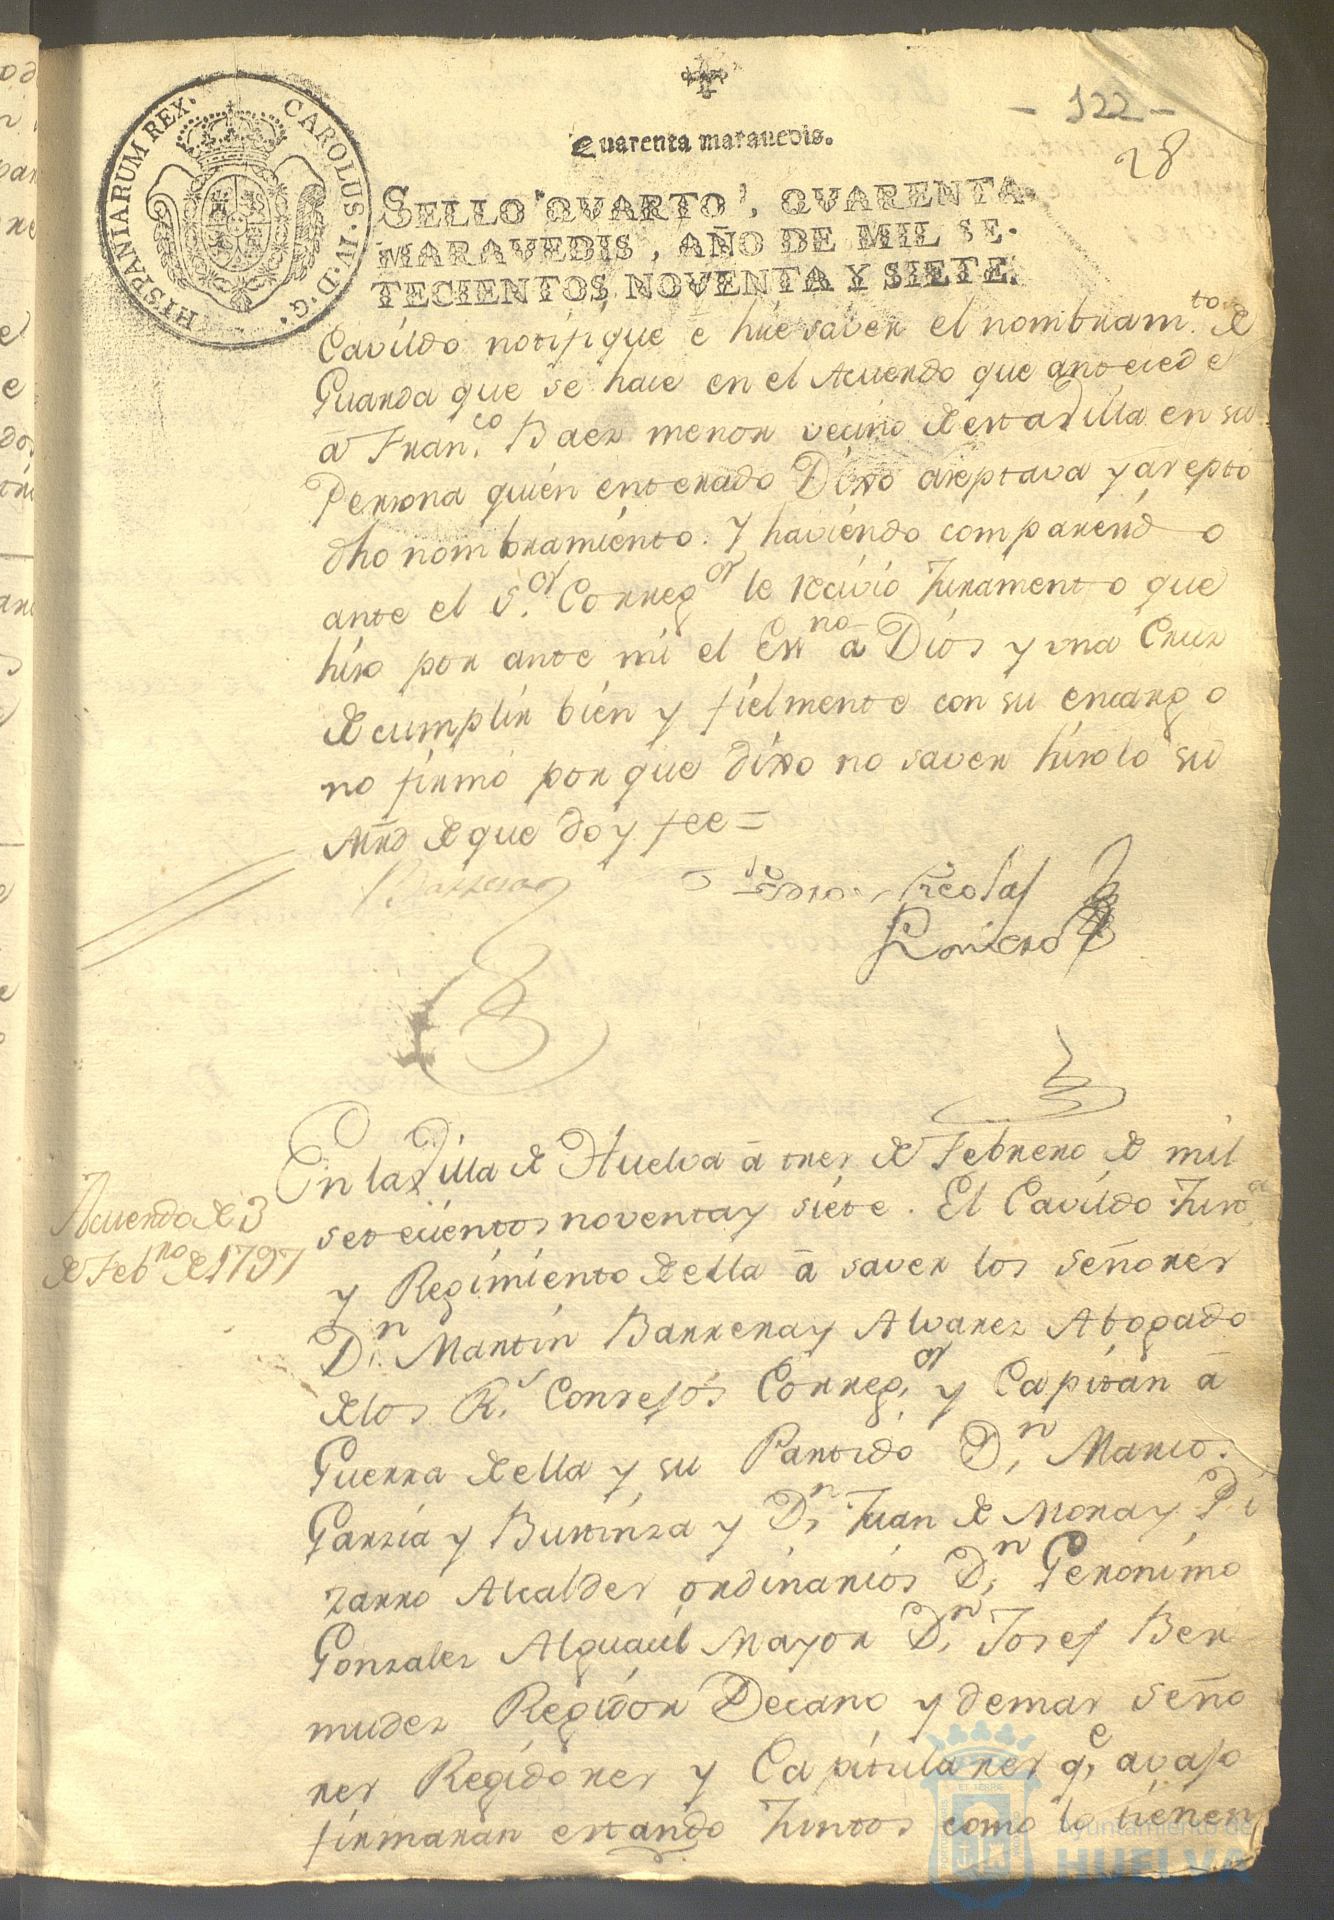 - 122 -
28
Quarenta maravedis.
HISPANIARUM REX. CAROLUS·IV·D·G·
SELLO QVARTO, QVARENTA
MARAVEDIS, AÑO DE MIL SE-
TECIENTOS NOVENTA Y SIETE.
Cavildo notifique e hise saver el nombram.to de
Guarda que se hace en el Acuerdo que antecede
a Fran.co Baez menor vecino de esta Villa en su
Persona quien enterado Dixo aceptava y acepto
dho nombramiento. Y haviendo comparecido
ante el S.or Correg.or le recivio Juramento que
hizo por ante mi el Essno a Dios y una Cruz
de cumplir bien y fielmente con su encargo
no firmó porque dixo no saver hizolo su
Mrd de que doy fee =
Barrera
Pedro Nicolas
Romero
Acuerdo de 3
de Feb.ro de 1797
En la Villa de Huelva â tres de Febrero de mil
setecientos noventa y siete. El Cavildo Just.a
y Regimiento de ella â saver los señores
D.n Martin Barrera y Alvarez Abogado
de los R.s Consejos Correg.or y Capitán â
Guerra de ella y su Partido D.n Marco.
Garzia y Bustinza y D.n Juan de Mora y Pi
zarro Alcaldes ordinarios D.n Geronimo
Gonzalez Alguacil Mayor D.n Josef Ber
mudez Regidor Decano y demas seño
res Regidores y Capitulares q.e avajo
firmaran estando Juntos como lo tienen
Ayuntamiento de
HUELVA